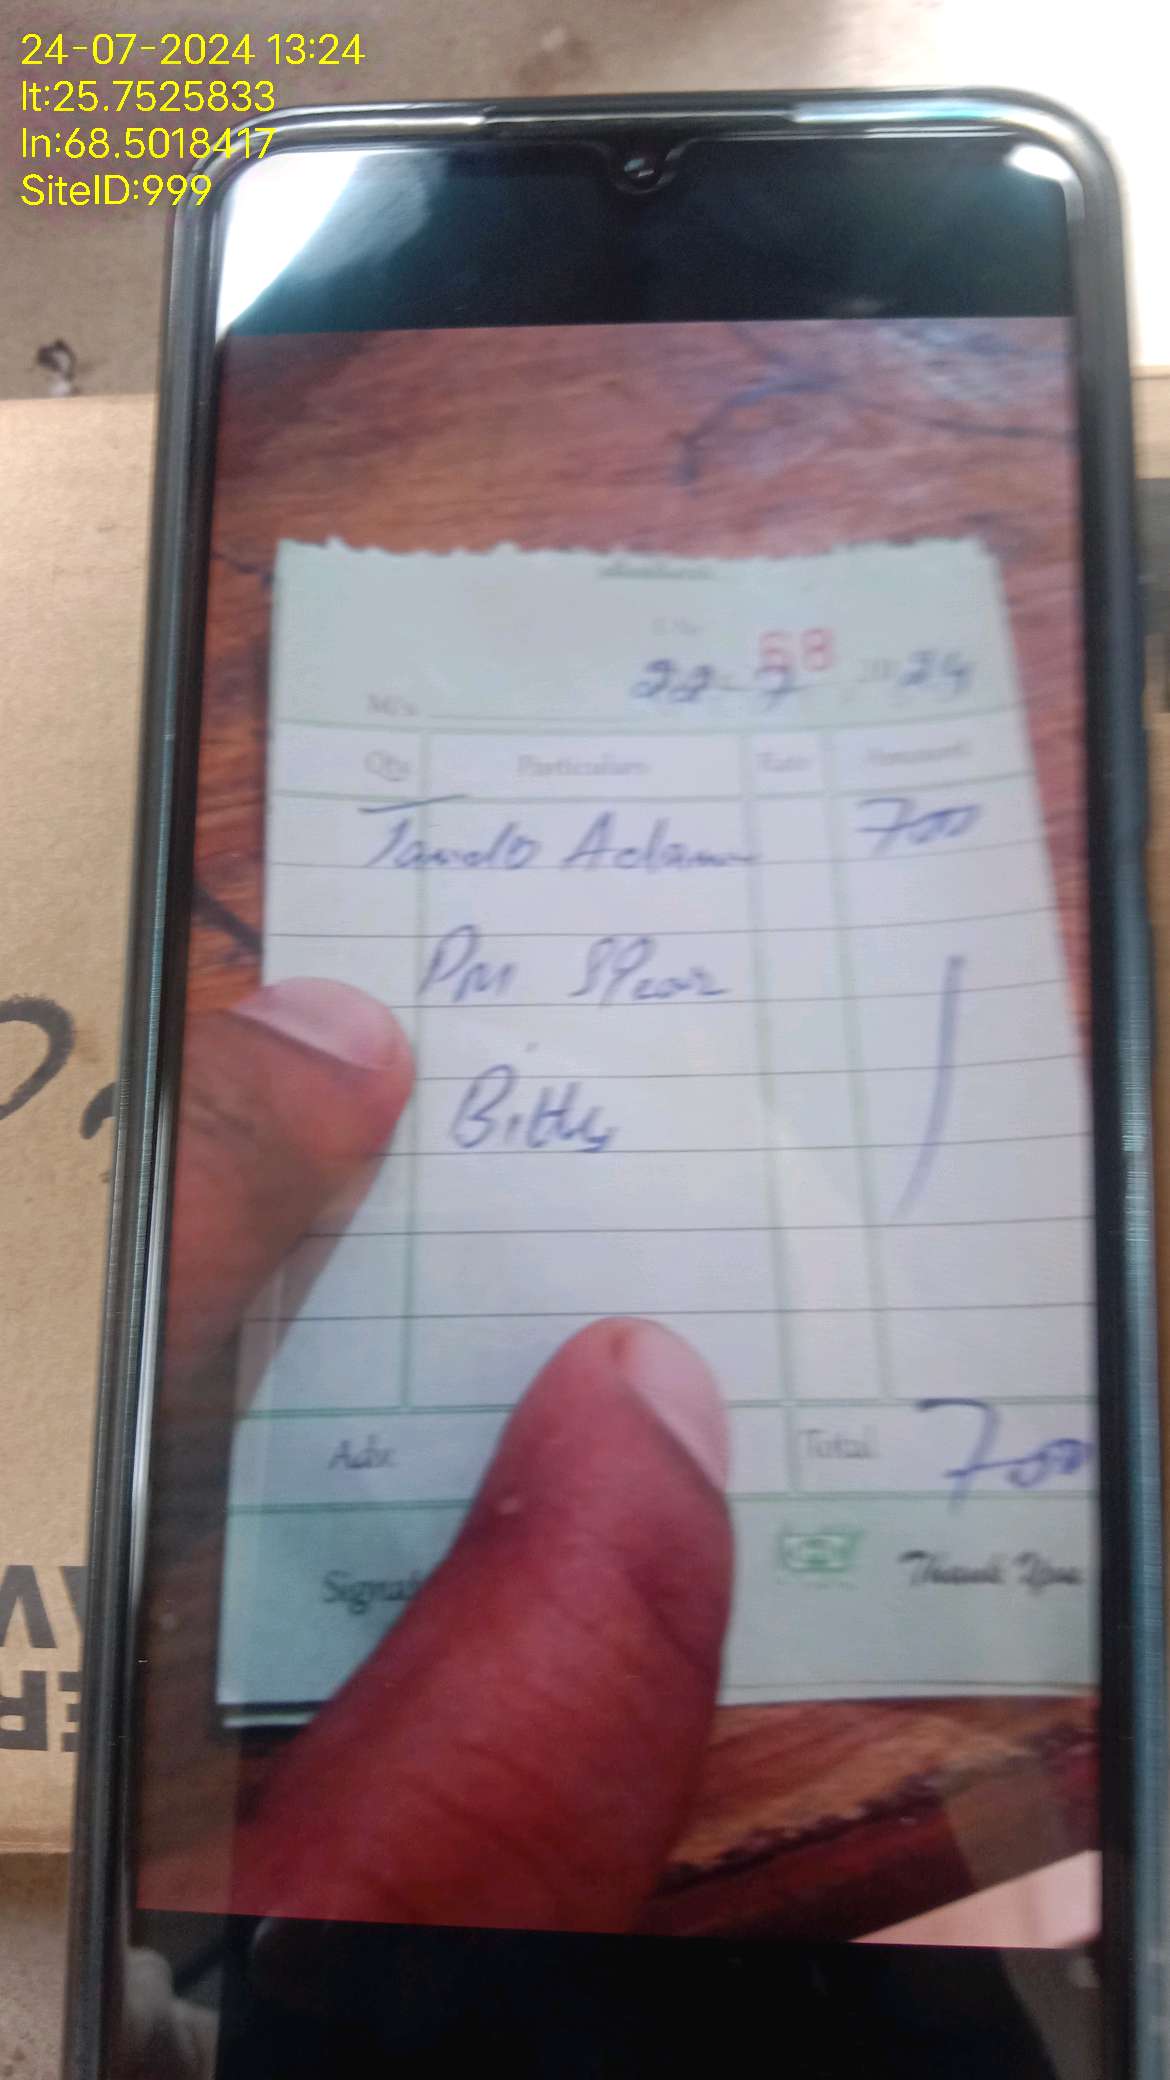 24-07-2024 13:24
lt:25.7525833
ln:68.5018417
SiteID:999
68
22-7 2024
M/s
Qty Particulars Rate Amount
Tando Adam 700
PM
Adv. Total 700
Thank You